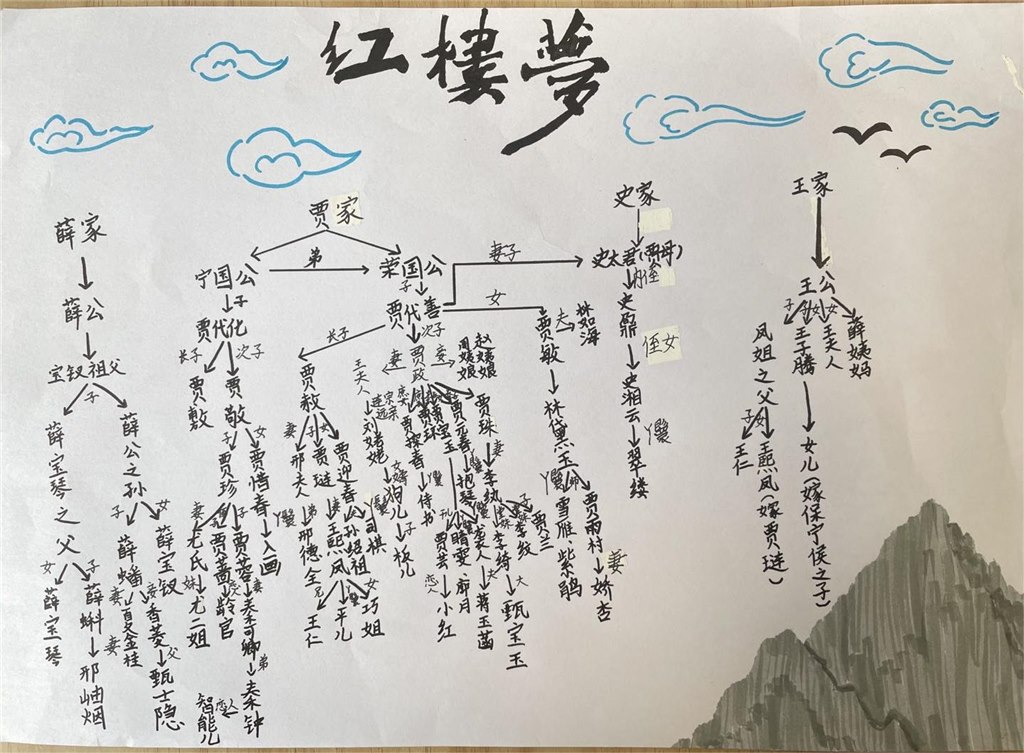 红楼夢
薛家
薛公
宝钗祖父
子
薛宝琴之父
女
子
薛宝琴
薛蝌
妻
邢岫烟
薛公之孙
子
女
薛蟠
薛宝钗
妻
妾
夏金桂
香菱
父
甄士隐
贾家
宁国公
弟
荣国公
子
贾代化
长子
次子
贾敷
贾敬
子
女
贾珍
贾惜春
丫鬟
入画
妻
子
尤氏
妹
尤二姐
贾蔷
恋人
龄官
贾蓉
妻
秦可卿
弟
秦钟
恋人
智能儿
子
贾代善
妻子
女
长子
次子
贾赦
妻
子
女
邢夫人
弟
邢德全
贾琏
妻
王熙凤
兄
王仁
平儿
女
巧姐
贾迎春
丫鬟
司棋
孙绍祖
贾政
妻
妾
王夫人
周姨娘
赵姨娘
连远
宗亲
刘姥姥
女婿
狗儿
子
板儿
贾探春
丫鬟
侍书
贾环
宝玉
贾元春
丫鬟
抱琴
晴雯
贾芸
恋人
小红
袭人
夫
蒋玉菡
贾珠
妻
李纨
子
贾兰
李纹
李绮
夫
甄宝玉
贾敏
夫
林如海
林黛玉
丫鬟
师
雪雁
紫鹃
贾雨村
妻
娇杏
史家
史太君(贾母)
内侄
史鼐
侄女
史湘云
丫鬟
翠缕
王家
王公
子
子
女
女
凤姐之父
王子腾
王夫人
薛姨妈
子
女
王仁
王熙凤(嫁贾琏)
女儿(嫁保宁侯之子)